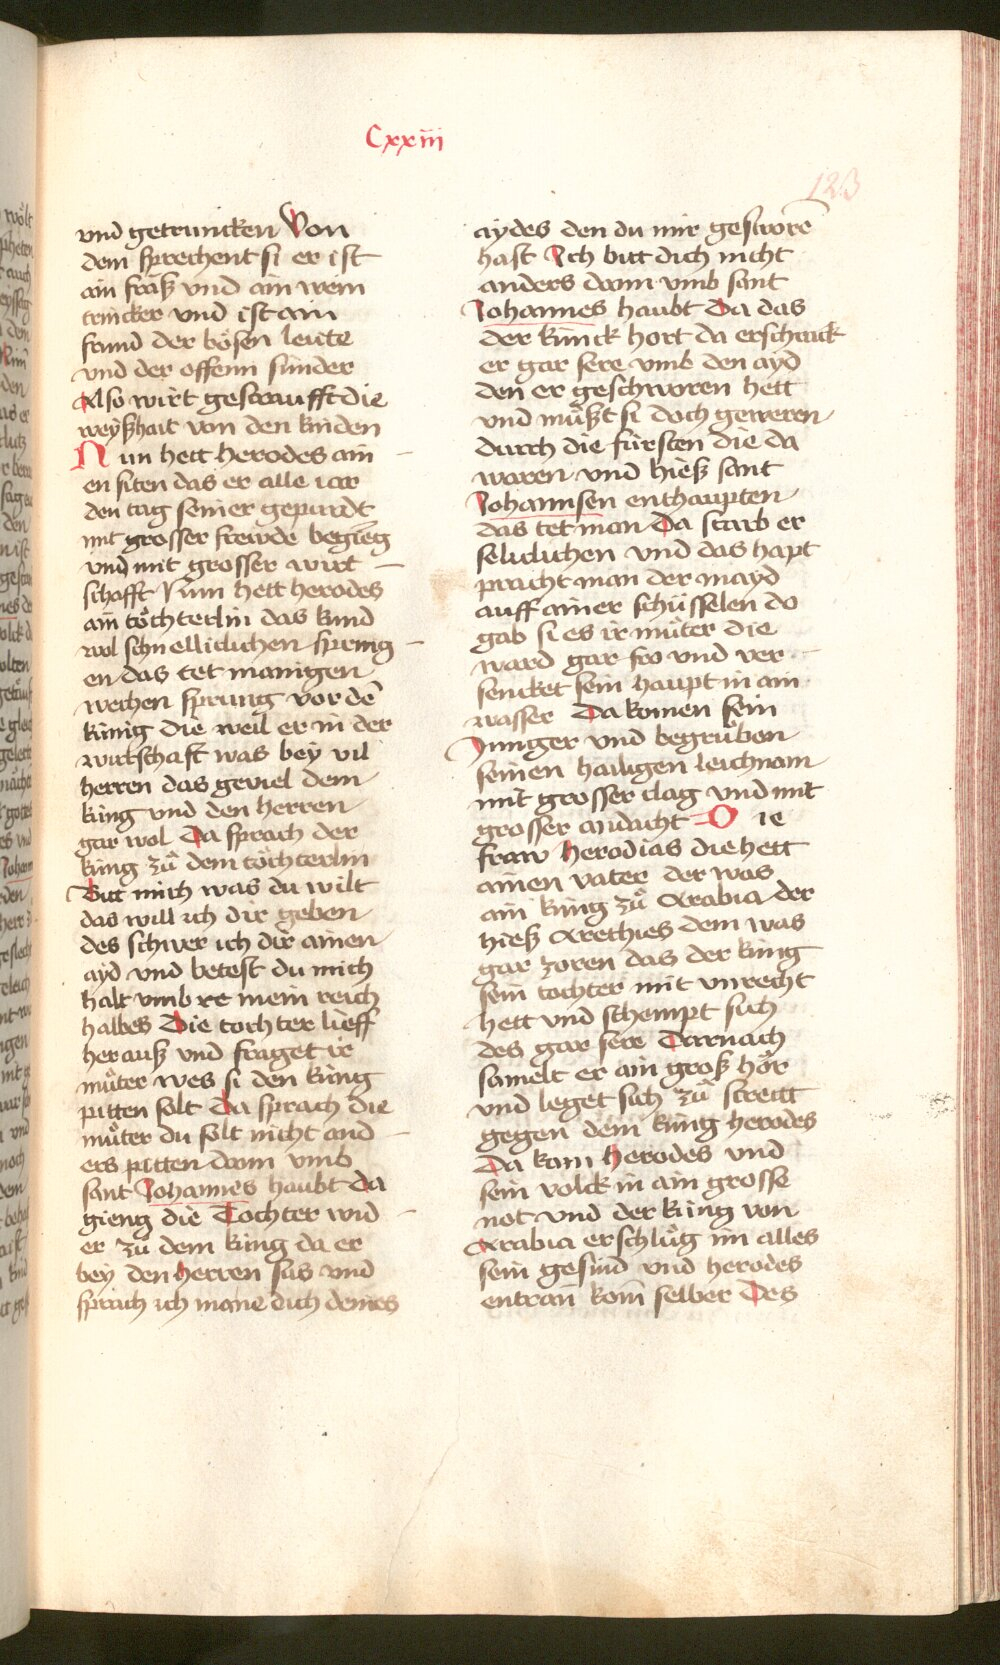 Cxxiii
123
vnd getruncken Von
dem sprechent si er ist
ain fräß vnd ain wein
trincker vnd ist ain
fraind der bösen leüte
vnd der offenn sünder
Also wirt gestraufft die
weÿßhait von den kinden
Nun hett herodes ain
en siten das er alle iar
den tag seiner gepurdt
mit grosser frewde begieng
vnd mit grosser wirt
schafft Nun hett herodes
ain töchterlin das kund
wol schnelliclichen spring
en das tet manigen
wechen sprung vor dē
künig die weil er in der
wirtschaft was bey vil
herren das geviel dem
küng vnd den herren
gar wol Da sprach der
küng zů dem töchterlin
Bitt mich was du wilt
das will ich dir geben
des schwer ich dir ainen
ayd vnd betest du mich
halt vmb re mein reich
halbes Die tochter lieff
herauß vnd fraget ir
můter wes si den küng
pitten solt Da sprach die
můter du solt nicht and
ers pitten dann vmb
sant Johannes haubt Da
gieng die Tochter wid
er zů dem küng da er
bey den herren sas vnd
sprach ich mane dich deines
aydes den du mir geswore͂
hast Ich bitt dich nicht
anders dann vmb sant
Johannes haubt Da das
der künck hort da erschrack
er gar sere vmb den ayd
den er geschworen hett
vnd můßt si doch geweren
durch die fürsten die da
waren vnd hieß sant
Johannsen enthaupten
das tet man Da starb er
seliclichen vnd das hapt
pracht man der mayd
auff ainer schüsselen do
gab si es ir můter die
ward gar fro vnd ver
sencket sein haupt in ain
wasser Da komen sein
Junger vnd begrůben
seinen hailigen leichnam
mit grosser clag vnd mit
grosser andacht Die
fraw herodias die hett
ainen vater der was
ain küng zů Arabia der
hieß Arethies dem was
gar zoren das der küng
sein tochter mit vnrecht
hett vnd schempt sich
des gar sere Darnach
samelt er ain groß hör
vnd leget sich zů streitt
gegen dem küng herodes
Da kam herodes vnd
sein volck in ain grosse
not vnd der küng von
Arabia erschlůg im alles
sein gesind vnd herodes
entran kom̄ selber Des